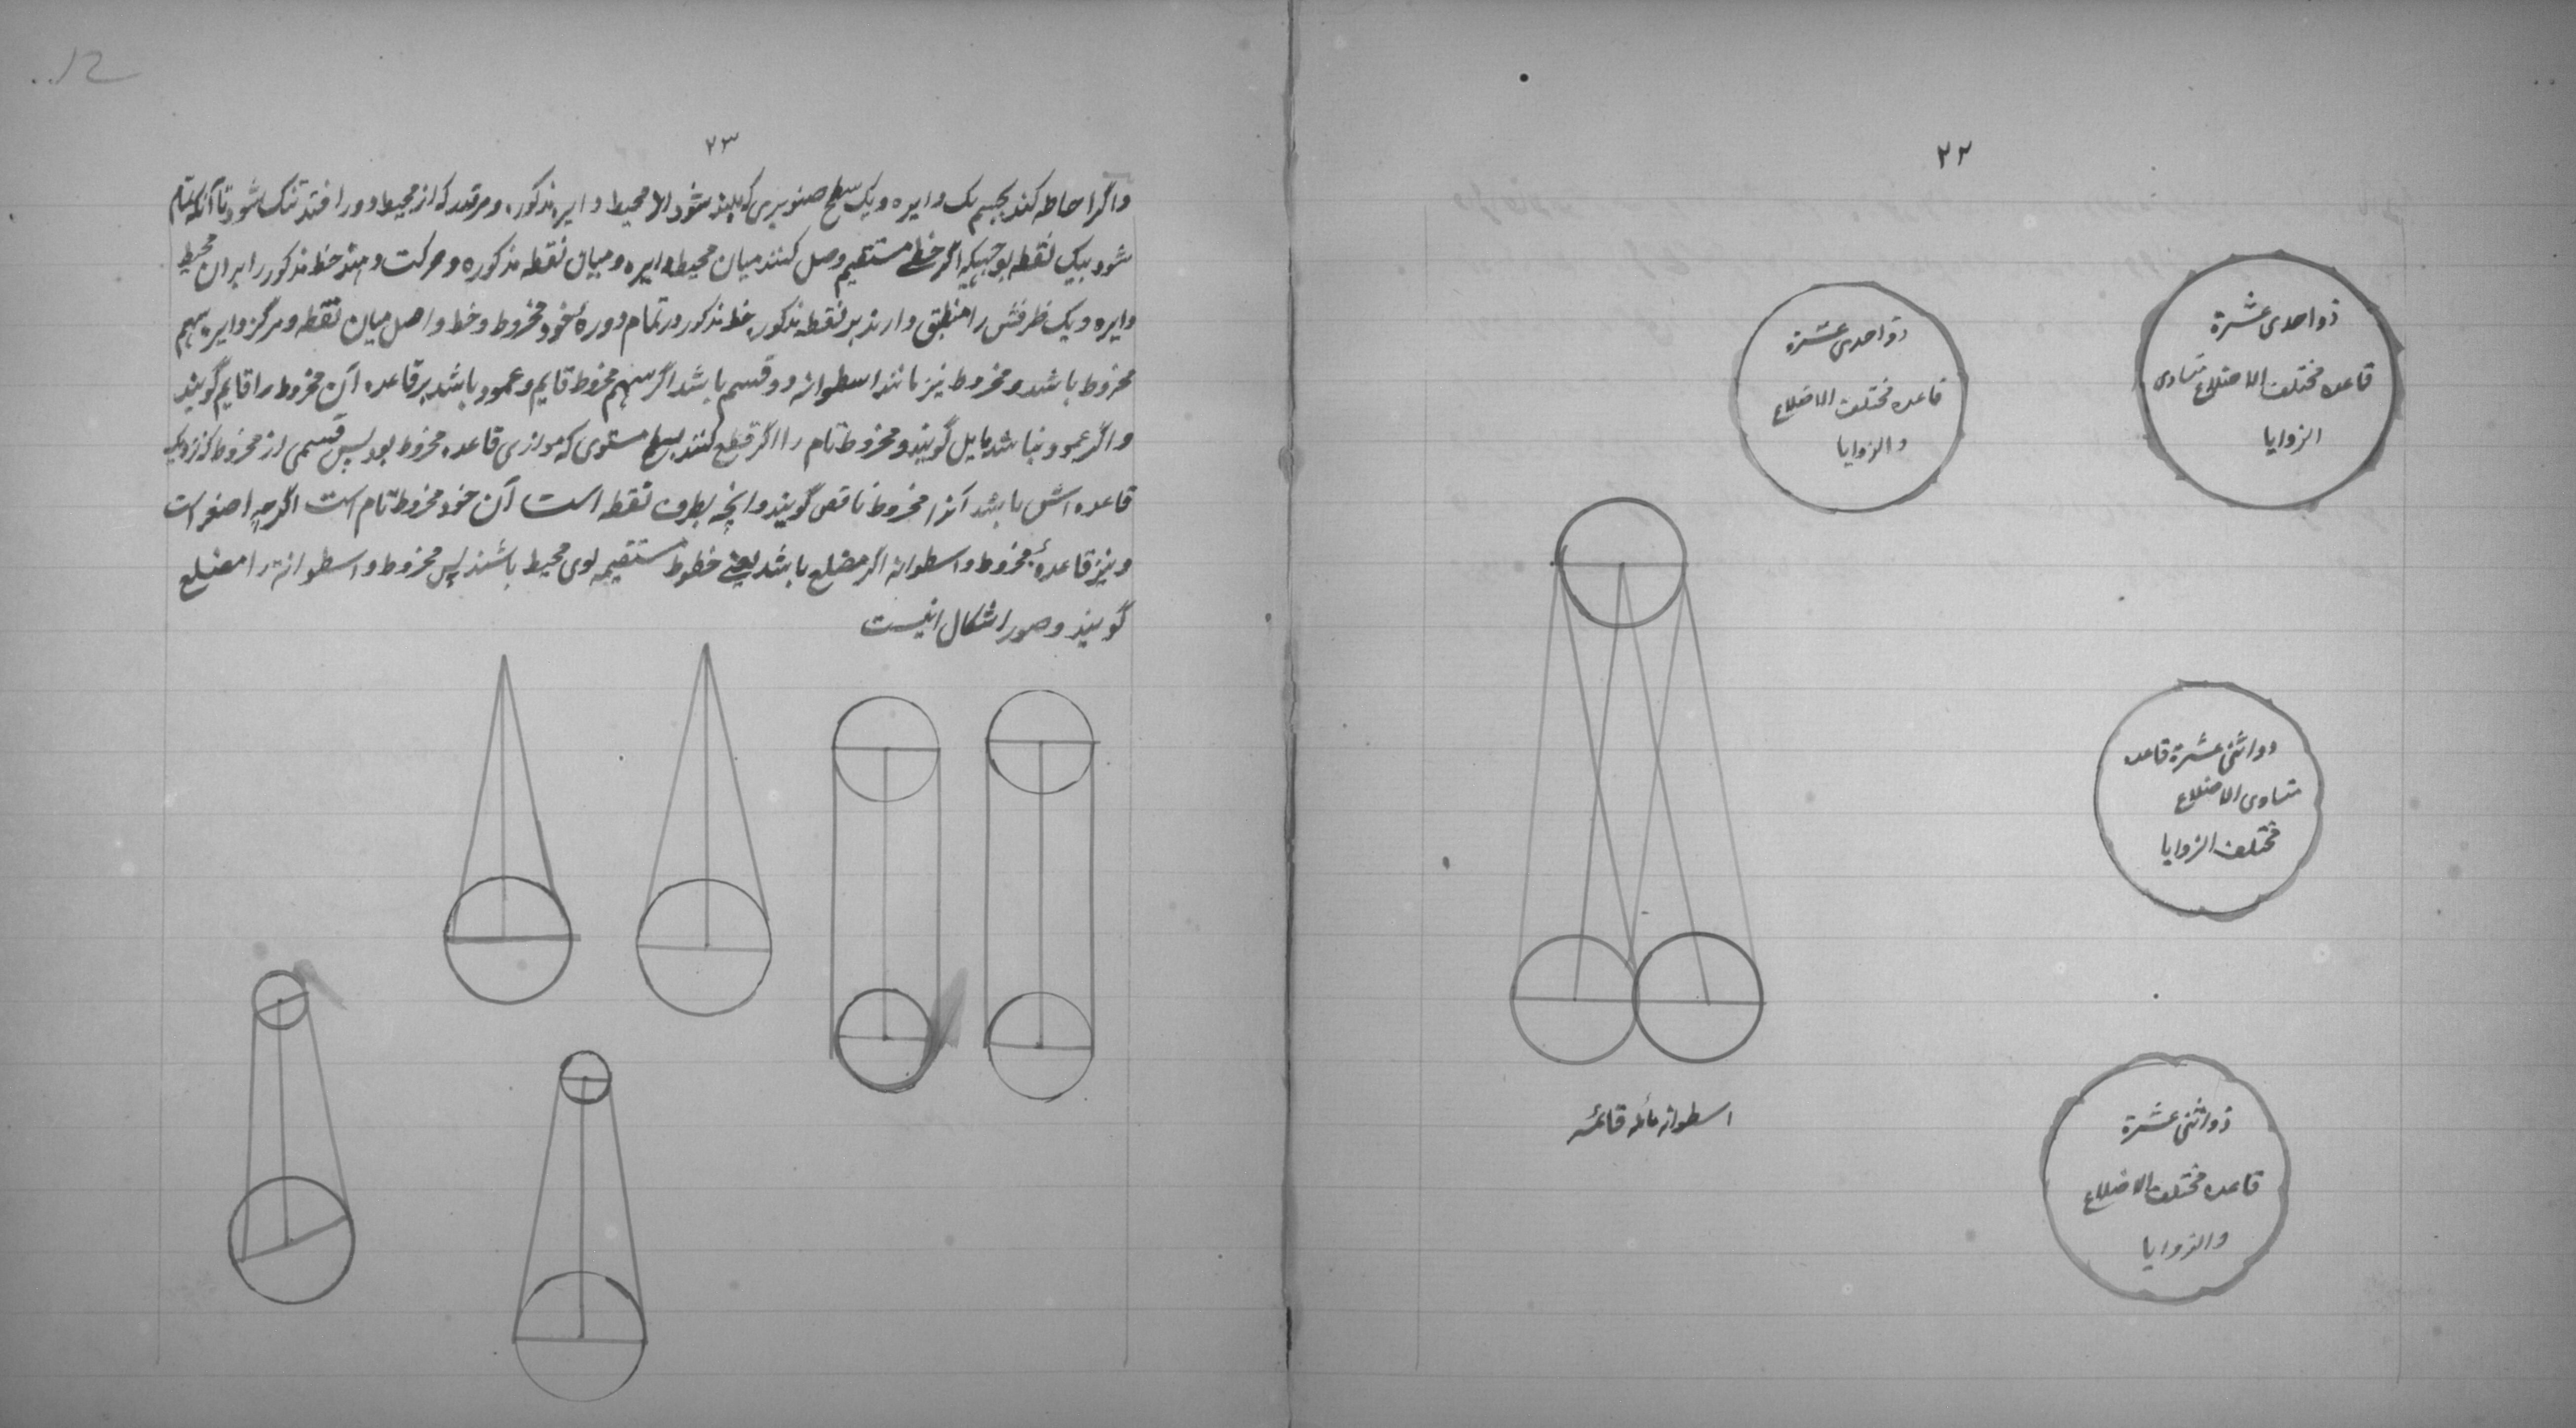 ٢٢
ذو احدی عشرة
قاعده مختلف الاضلاع متساوی
الزوایا
ذو احدی عشرة
قاعده مختلف الاضلاع
والزوایا
ذو اثنی عشرة قاعده
متساوی الاضلاع
مختلف الزوایا
ذو اثنی عشرة
قاعده مختلف الاضلاع
والزوایا
اسطوانه مائله قائمه
٢٣
و اگر احاطه کند بجسم یک دایره و یک سطح صنوبری که بلند شود از محیط دایره مذکور و هر قدر که از محیط دور افتد تنگ شود تا آنکه تمام
شود بیک نقطه بوجهیکه اگر خطی مستقیم وصل کنند میان محیط دایره و میان نقطه مذکوره و حرکت دهند خط مذکور را بران محیط
دایره و یک طرفش را منطبق دارند بر نقطه مذکور خط مذکور در تمام دوره خود مخروط و خط واصل میان نقطه و مرکز دایره سهم
مخروط باشد و مخروط نیز مانند اسطوانه دو قسم باشد اگر سهم مخروط قایم و عمود باشد بر قاعده آن مخروط را قایم گویند
و اگر عمود نباشد مایل گویند و مخروط تام را اگر قطع کنند بسطح مستوی که موازی قاعده مخروط بود پس قسمی از مخروط که نزدیک
قاعده اش باشد آنرا مخروط ناقص گویند و آنچه بطرف نقطه است آن خود مخروط تام است اگرچه اصغر است
و نیز قاعدهٔ مخروط و اسطوانه اگر مضلع باشد یعنی خطوط مستقیمه لوی محیط باشند پس مخروط و اسطوانه را مضلع
گویند و صور اشکال اینست